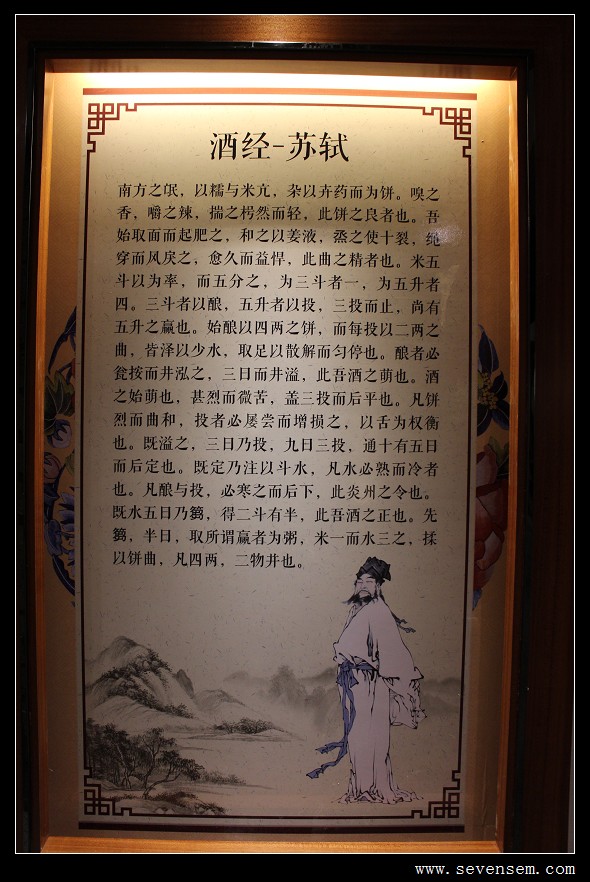 酒经-苏轼
南方之氓，以糯与米亢，杂以卉药而为饼。嗅之
香，嚼之辣，揣之枵然而轻，此饼之良者也。吾
始取面而起肥之，和之以姜液，烝之使十裂，绳
穿而风戾之，愈久而益悍，此曲之精者也。米五
斗以为率，而五分之，为三斗者一，为五升者
四。三斗者以酿，五升者以投，三投而止，尚有
五升之赢也。始酿以四两之饼，而每投以二两之
曲，皆泽以少水，取足以散解而匀停也。酿者必
瓮按而井泓之，三日而井溢，此吾酒之萌也。酒
之始萌也，甚烈而微苦，盖三投而后平也。凡饼
烈而曲和，投者必屡尝而增损之，以舌为权衡
也。既溢之，三日乃投，九日三投，通十有五日
而后定也。既定乃注以斗水，凡水必熟而冷者
也。凡酿与投，必寒之而后下，此炎州之令也。
既水五日乃篘，得二斗有半，此吾酒之正也。先
篘，半日，取所谓赢者为粥，米一而水三之，揉
以饼曲，凡四两，二物并也。
www.sevensem.com